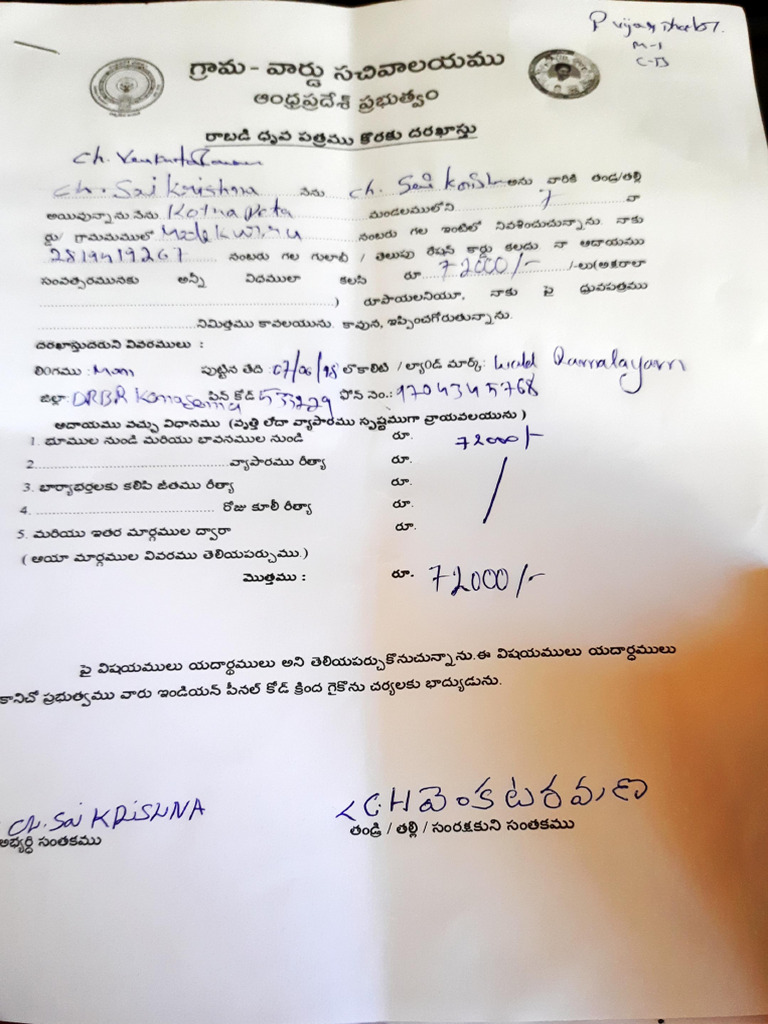 M-1
C-B
గ్రామ - వార్డు సచివాలయము
ఆంధ్రప్రదేశ్ ప్రభుత్వం
రాబడి ధృవ పత్రము కొరకు దరఖాస్తు
Ch. VenkataRamana
Ch. Sai Krishna నేను Ch. Sai Krish అను వారికి తండ్రి/తల్లి
అయివున్నాను నేను Kotha peta మండలములోని 7 వా
ర్డు గ్రామములో నంబరు గల ఇంటిలో నివశించుచున్నాను. నాకు
2819419267 నంబరు గల గులాబీ / తెలుపు రేషన్ కార్డు కలదు. నా ఆదాయము
సంవత్సరమునకు అన్నీ విధములా కలసి రూ 72000/- /-లు(అక్షరాలా
) రూపాయలనియూ, నాకు పై ధ్రువపత్రము
నిమిత్తము కావలయును. కావున, ఇప్పించగోరుతున్నాను.
దరఖాస్తుదారుని వివరములు :
లింగము : పుట్టిన తేది : 07/06/98 లొకాలిటి / ల్యాండ్ మార్క్: Ramalayam
జిల్లా: DRBR Konaseema పిన్ కోడ్ 533229 ఫోన్ నం.: 9704345768
ఆదాయము వచ్చు విధానము (వృత్తి లేదా వ్యాపారము స్పష్టముగా వ్రాయవలయును )
1. భూముల నుండి మరియు భావనముల నుండి రూ. 72000/-
2. వ్యాపారము రీత్యా రూ.
3. భార్యాభర్తలకు కలిపి జీతము రీత్యా రూ.
4. రోజు కూలీ రీత్యా రూ.
5. మరియు ఇతర మార్గముల ద్వారా రూ.
( ఆయా మార్గముల వివరము తెలియపర్చుము.)
మొత్తము : రూ. 72000/-
పై విషయములు యదార్థములు అని తెలియపర్చుకొనుచున్నాను.ఈ విషయములు యదార్ధములు
కానిచో ప్రభుత్వము వారు ఇండియన్ పీనల్ కోడ్ క్రింద గైకొను చర్యలకు భాద్యుడును.
Ch. Sai KRISHNA
అభ్యర్ధి సంతకము
CH వెంకటరమణ
తండ్రి / తల్లి / సంరక్షకుని సంతకము